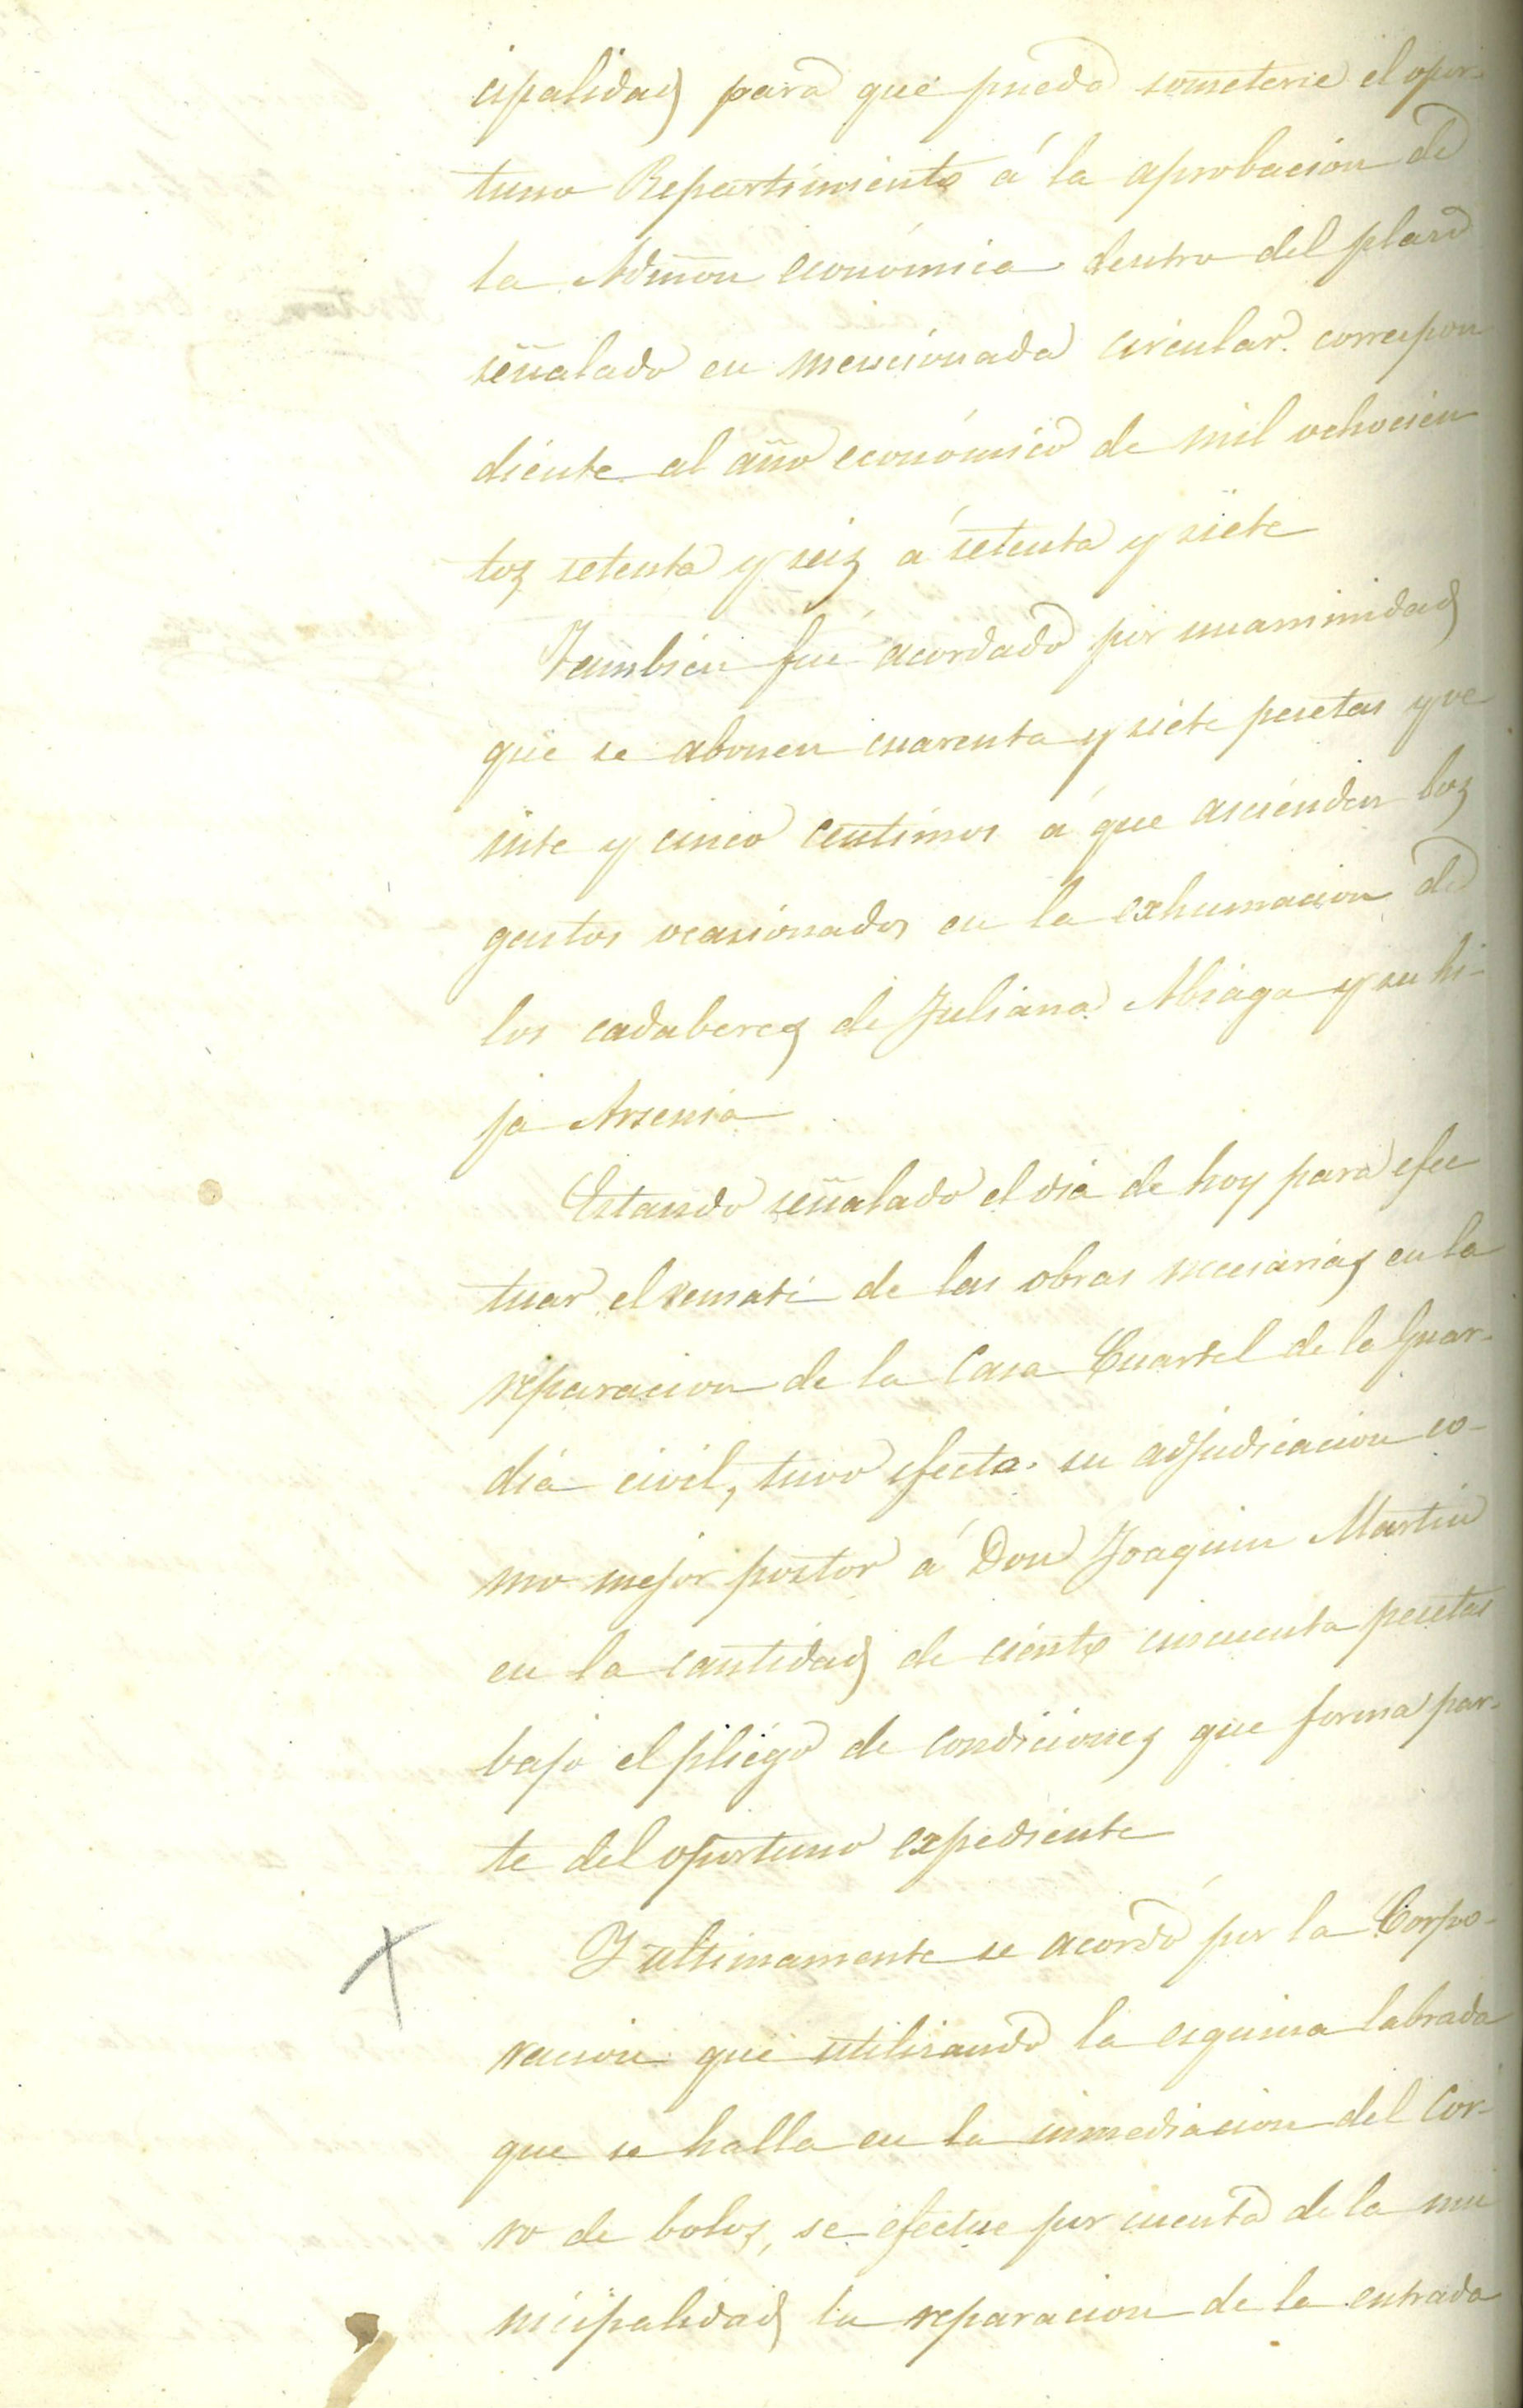 cipalidad para que pueda someterse el opor-
tuno Repartimiento á la aprobacion de
la Admon económica dentro del plazo
señalado en mencionada circular correspon
diente al año económico de mil ochocien
tos setenta y seis a setenta y siete
Tambien fué acordado por unanimidad
que se abonen cuarenta y siete pesetas y ve
inte y cinco centimos á que ascienden los
gastos ocasionados en la exhumacion de
los cadaberes de Juliana Abiaga y su hi-
ja Arsenia
Estando señalado el dia de hoy para efec
tuar el remate de las obras necesarias en la
reparacion de la Casa Cuartel de la Guar-
dia civil, tuvo efecto su adjudicacion co-
mo mejor postor á Don Joaquin Martin
en la cantidad de ciento cincuenta pesetas
bajo el pliego de condiciones que forma par-
te del oportuno expediente
Y ultimamente se acordó por la Corpo-
racion que utilizando la esquina labrada
que se halla en la inmediacion del Cor-
ro de bolos, se efectue por cuenta de la mu
nicipalidad la reparacion de la entrada